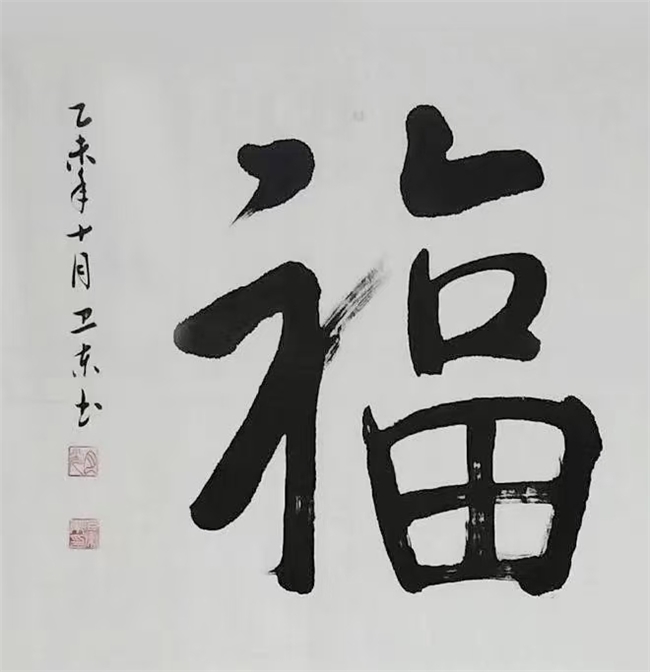 福
乙未年十月卫东书